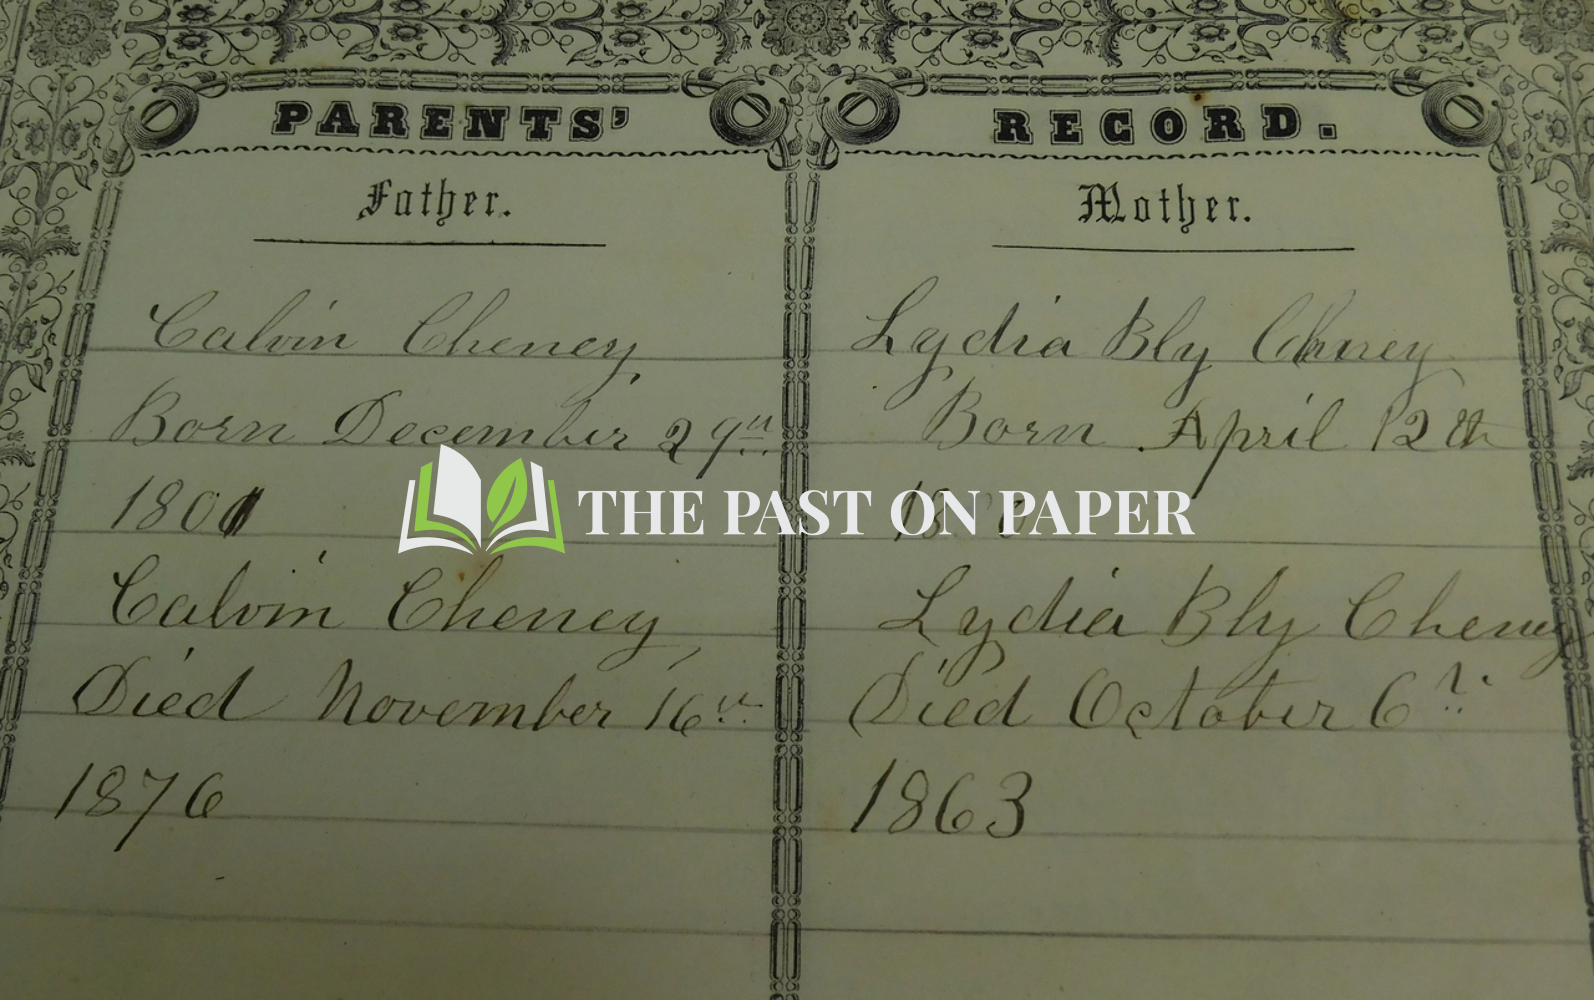 PARENTS' RECORD.
Father.
Calvin Cheney
Born December 29th
1801
Calvin Cheney,
Died November 16th
1876
Mother.
Lydia Bly Cheney
Born April 12th
Lydia Bly Cheney
Died October 6th
1863
THE PAST ON PAPER